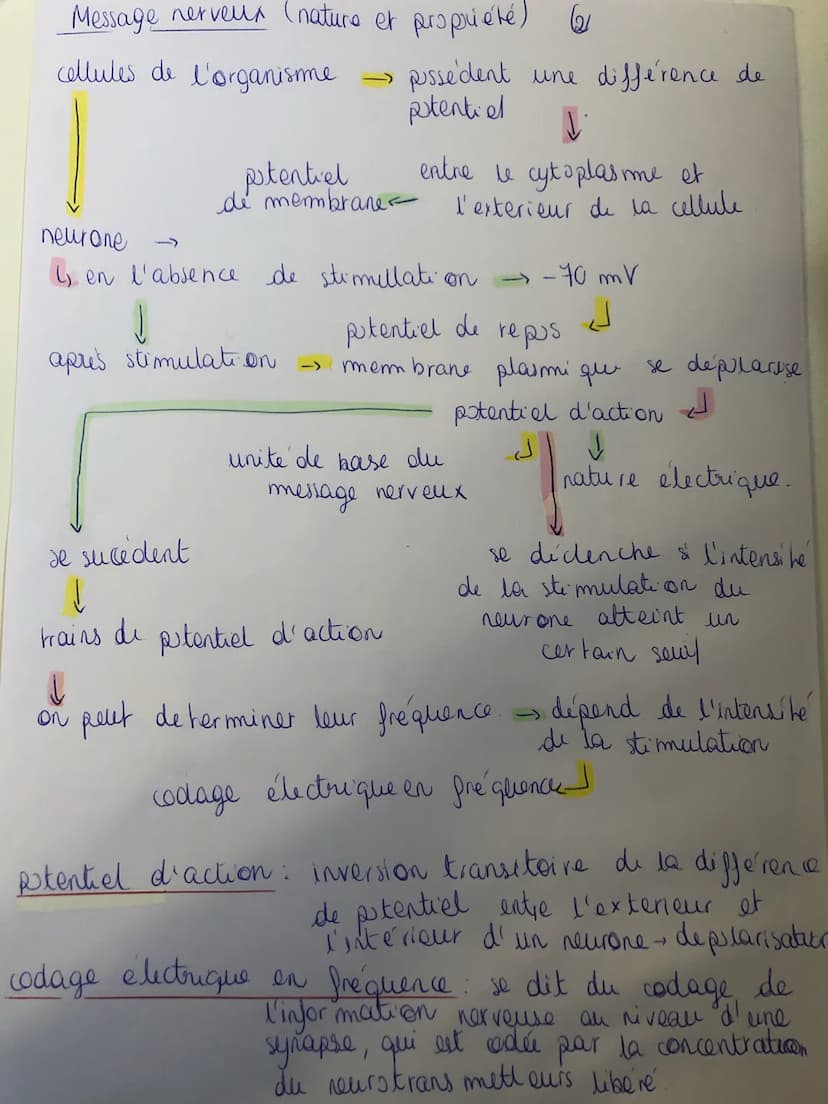 Message nerveux (nature et propriété) (2)
cellules de l'organisme → possèdent une différence de
potentiel ↓
potentiel entre le cytoplasme et
de membrane ← l'exterieur de la cellule
neurone →
↳ en l'absence de stimullation → -70 mV
potentiel de repos ↲
après stimulation → membrane plasmique se dépolarise
potentiel d'action ↲
unité de base du ↲ ↓ nature électrique.
message nerveux
se succèdent se déclenche si l'intensité
↓ de la stimulation du
neurone atteint un
trains de potentiel d'action certain seuil
↓
on peut determiner leur fréquence. → dépend de l'intensité
de la stimulation
codage électrique en fréquence ↲
potentiel d'action : inversion transitoire de la différence
de potentiel entre l'exterieur et
l'intérieur d'un neurone → depolarisation
codage électrique en fréquence : se dit du codage de
l'information nerveuse au niveau d'une
synapse, qui est codée par la concentration
du neurotransmetteurs libéré